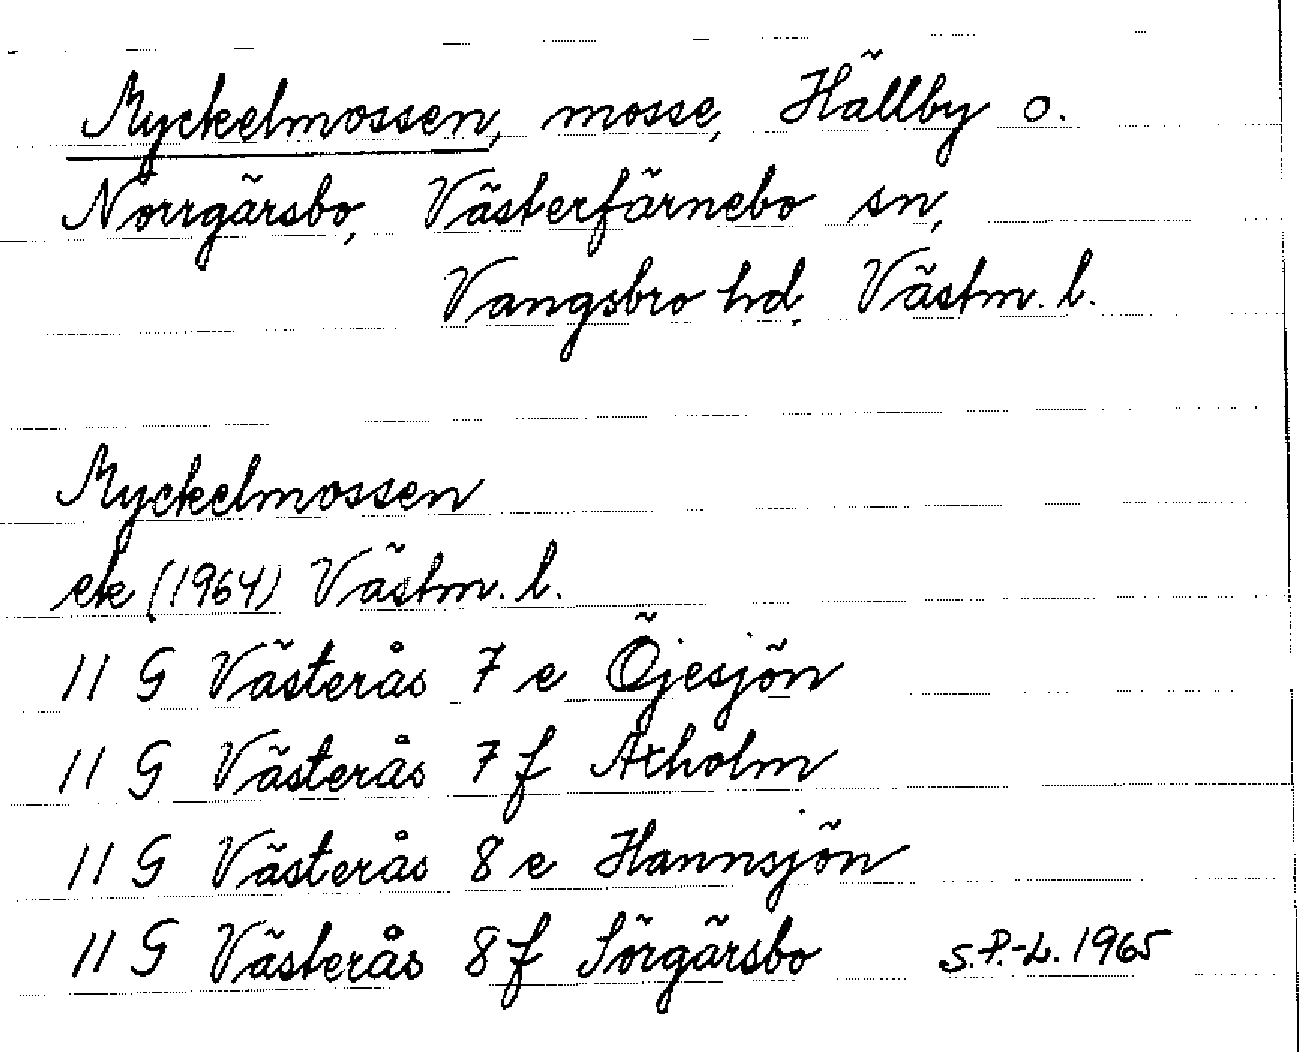 Myckelmossen, mosse, Hällby o.
Norrgärsbo, Västerfärnebo sn,
Vangsbro hd. Västm. l.
Myckelmossen
ek (1964) Västm. l.
11 G Västerås 7 e Öjesjön
11 G Västerås 7 f Axholm
11 G Västerås 8 e Hannsjön
11 G Västerås 8 f Sörgärsbo S.P.-L. 1965